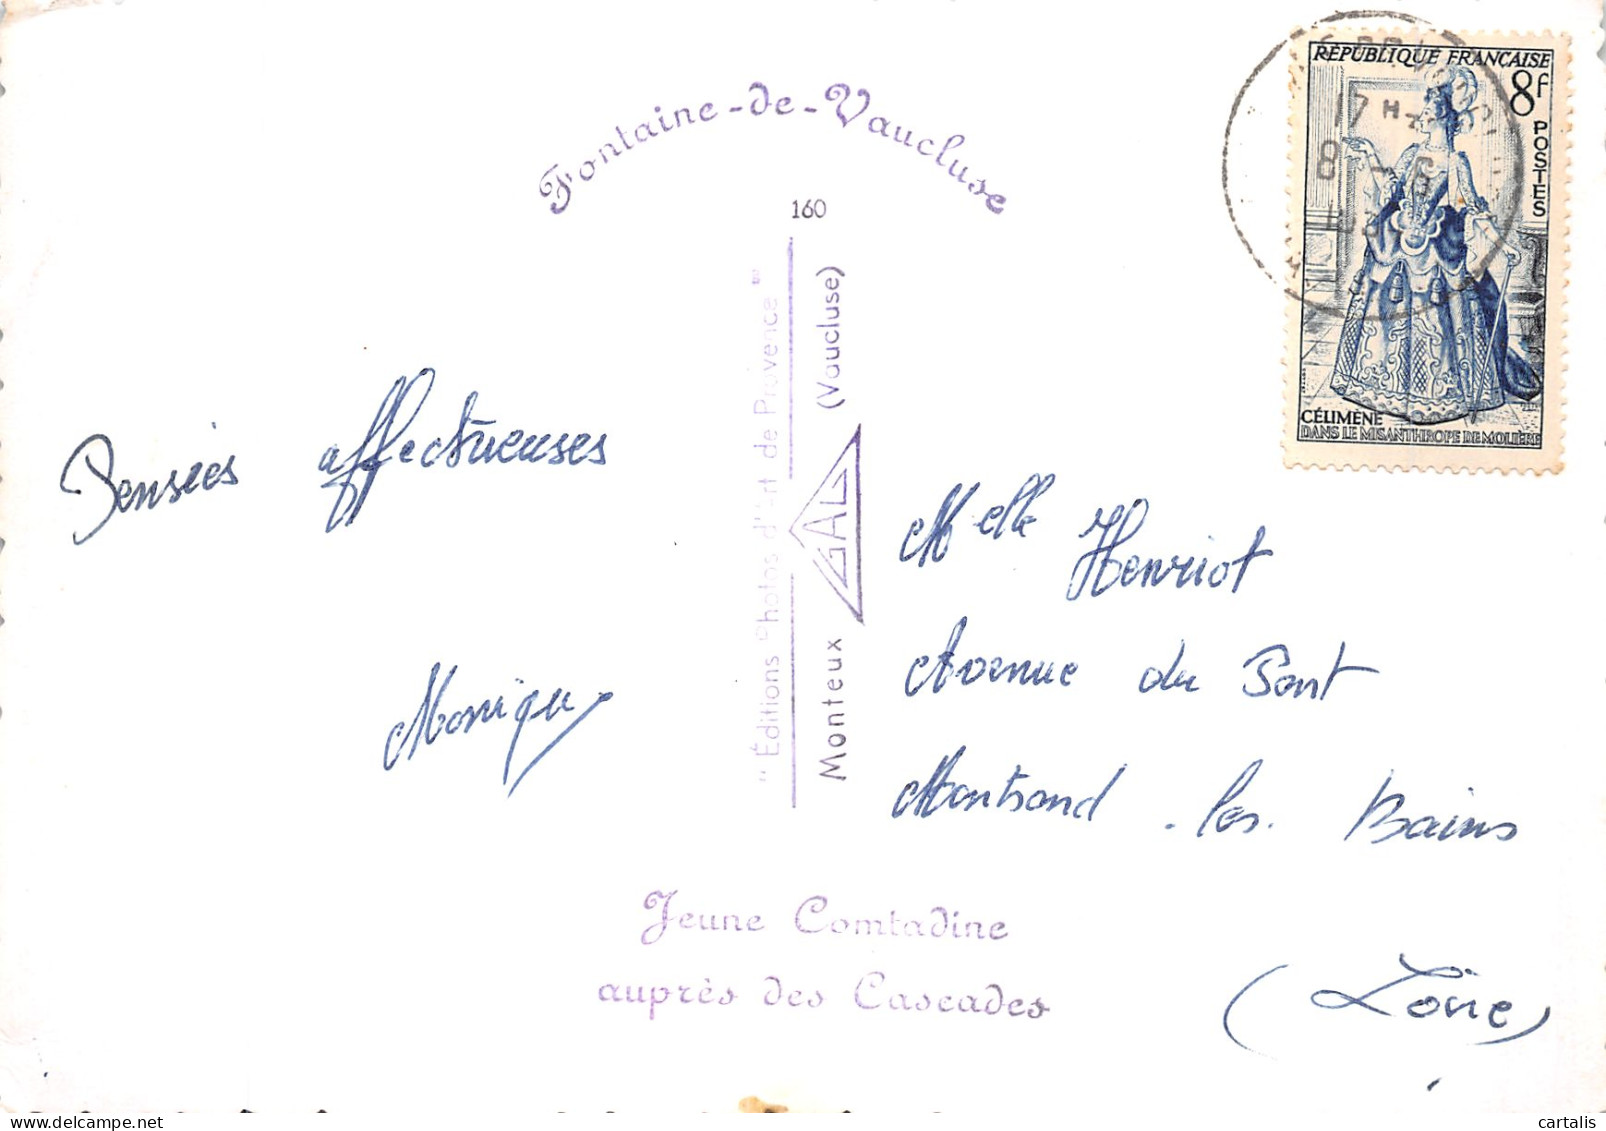 Fontaine-de-Vaucluse
160
RÉPUBLIQUE FRANÇAISE
8F
POSTES
17 H
8
CÉLIMÈNE
DANS LE MISANTHROPE DE MOLIÈRE
Pensées affectueuses
Monique
"Éditions Photos d'Art de Provence"
Monteux GAL (Vaucluse)
Melle Henriot
Avenue du Pont
Montrond - les - Bains
(Loire)
Jeune Comtadine
auprès des Cascades
cartalis
delcampe.net